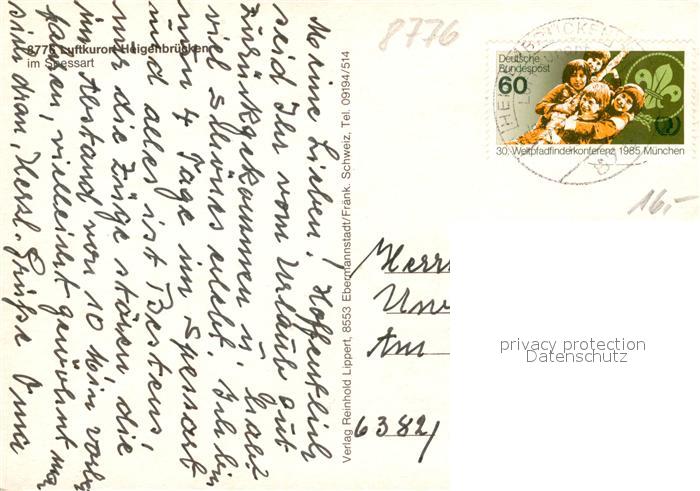 8776 Luftkurort Heigenbrücken
im Spessart
Meine Lieben! Hoffentlich
seid Ihr vom Urlaub gut
zurückgekommen u. habt
viel Schönes erlebt. Ich bin
nun 4 Tage im Spessart
und alles ist Bestens,
nur die Züge stören die
im Abstand von 10 Min vorbei
fahren, vielleicht gewöhnt man
sich dran, Herzl. Grüße Oma
Verlag Reinhold Lippert, 8553 Ebermannstadt/Fränk. Schweiz, Tel. 09194/514
8776
HEIGENBRÜCKEN
Deutsche
Bundespost
60
30. Weltpfadfinderkonferenz 1985 München
16,-
Herrn
Am
6382
privacy protection
Datenschutz